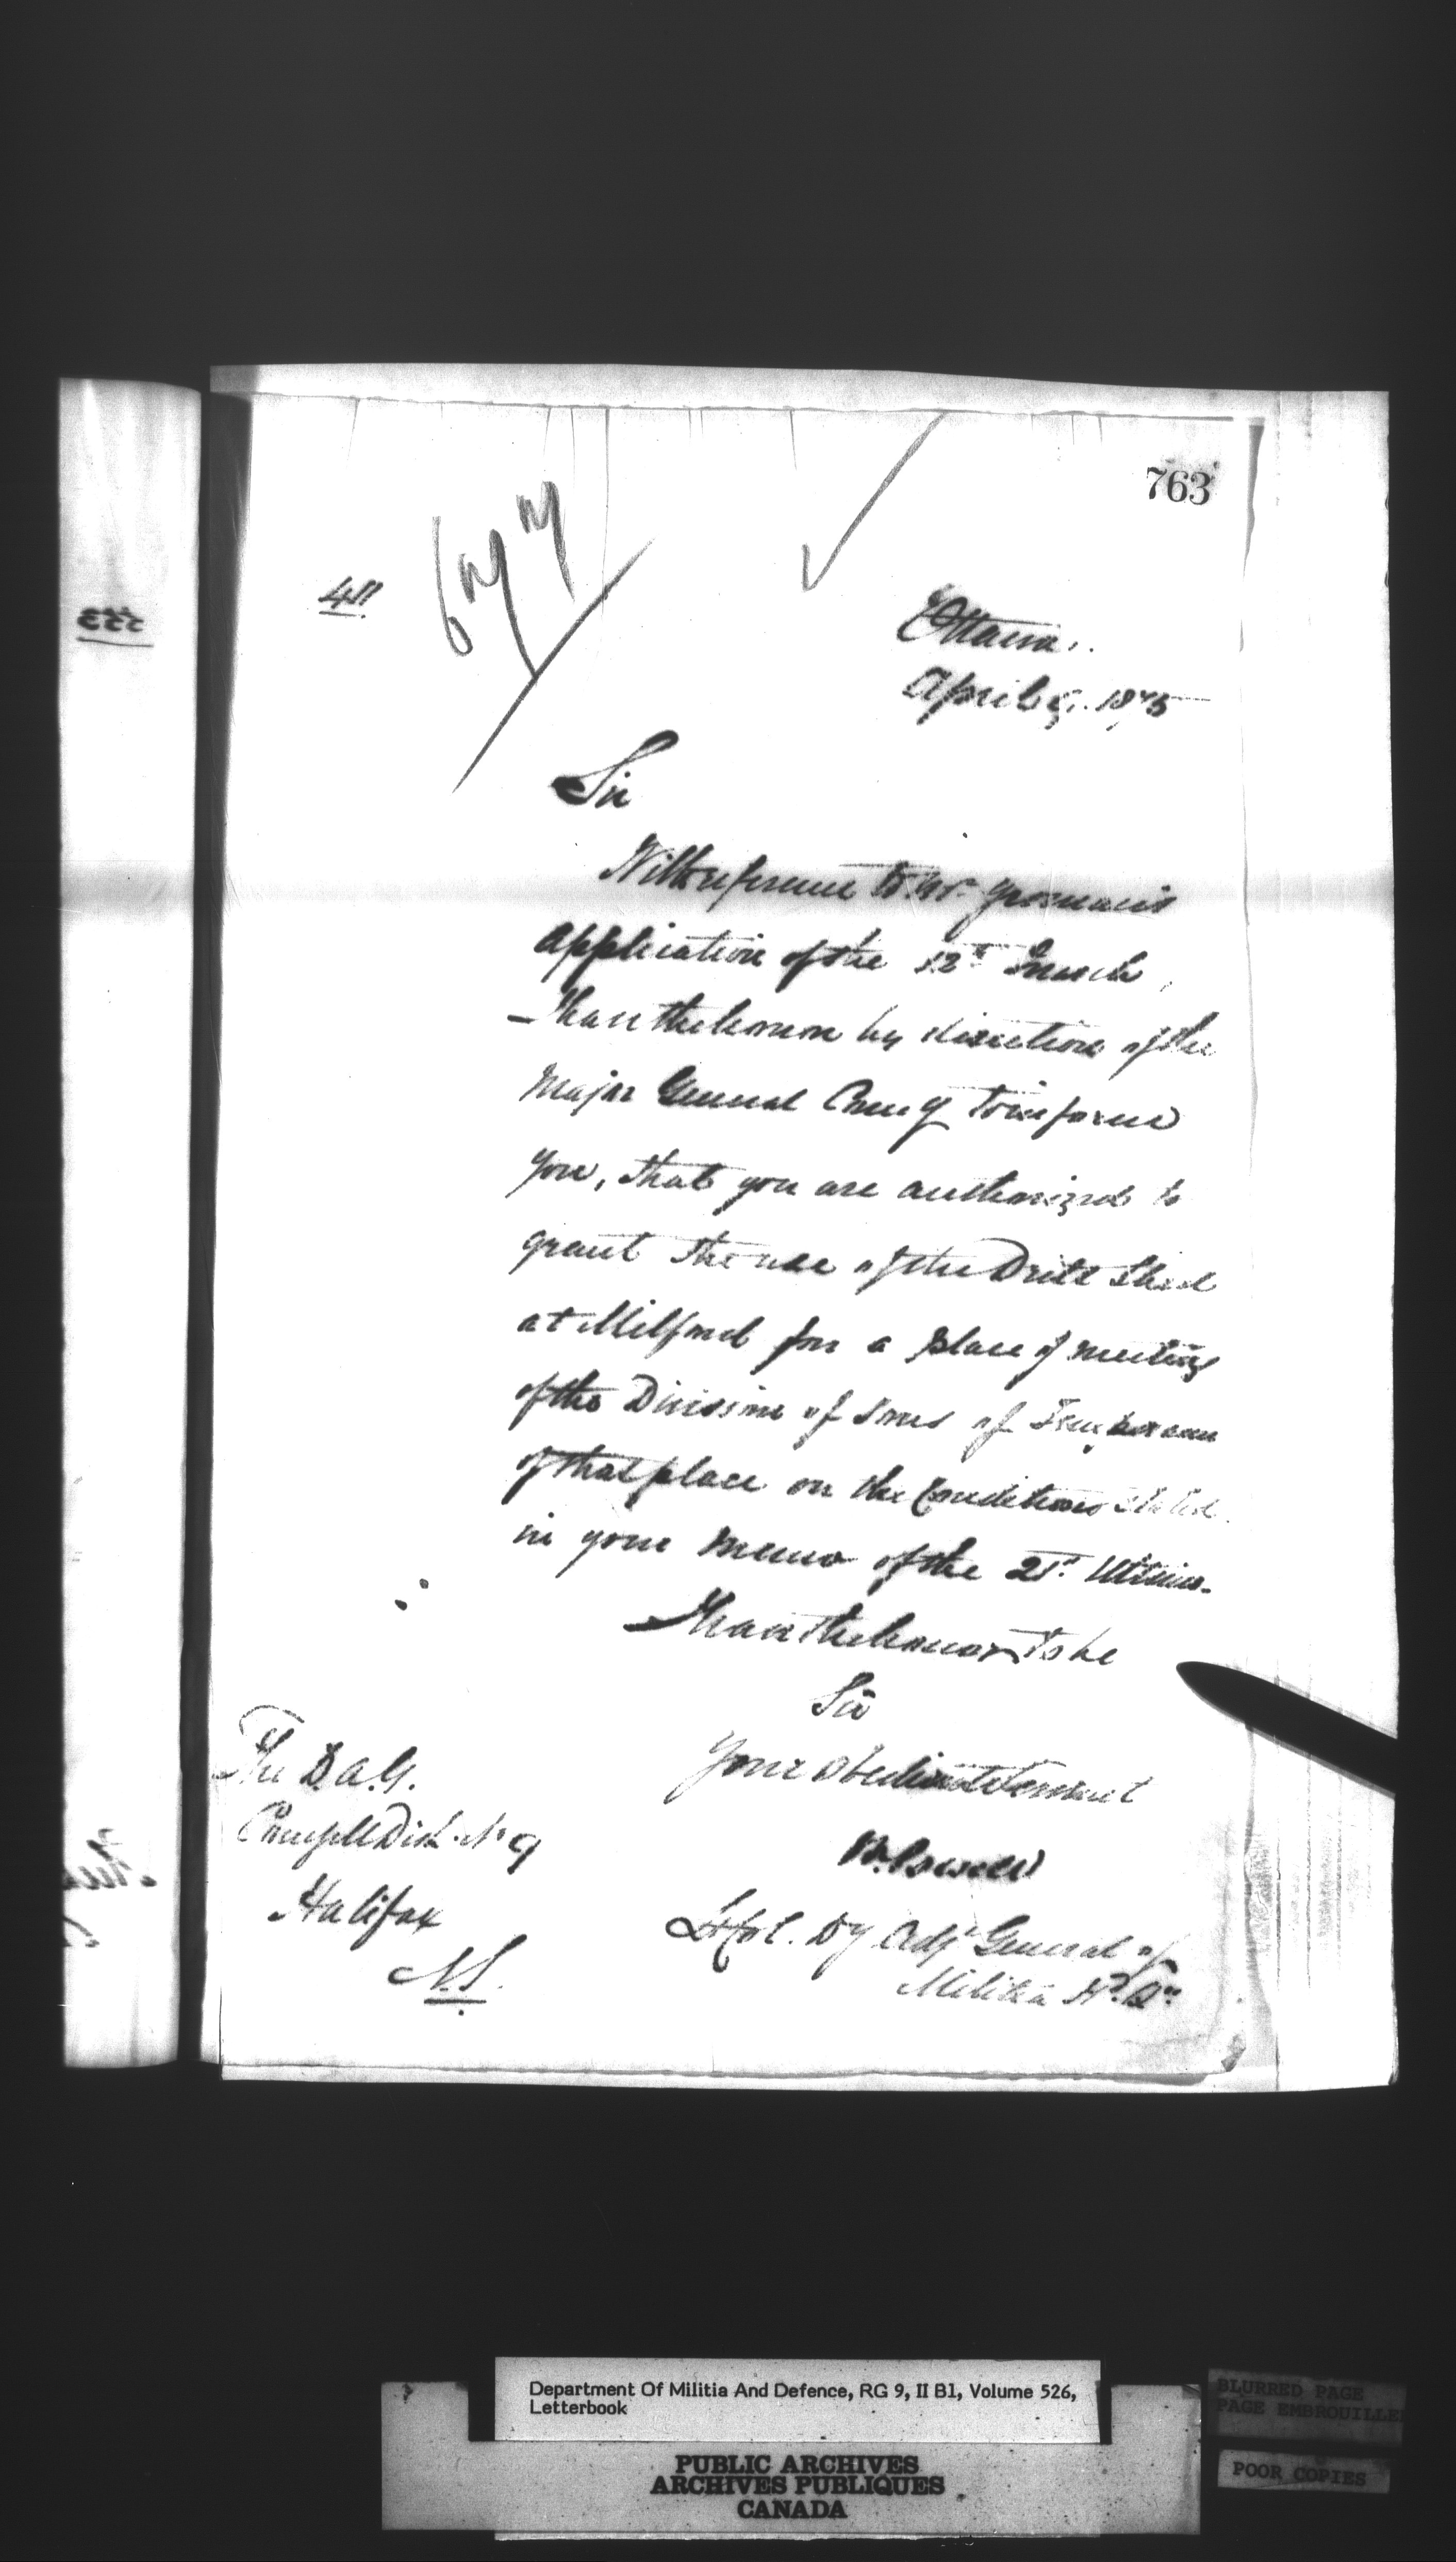 763
411
Ottawa.
April 9. 1875
Sir
With reference to Mr.
application of the 12th March,
I have the honor by direction of the
Major General Comg to inform
you, that you are authorized to
grant the use of the Drill Shed
at Milford for a place of meeting
of the Division of Sons of Temperance
of that place on the Conditions stated
in your Memo of the 21st Ultimo.
I have the honor to be
Sir
Your obedient Servant
W. Powell
Lt Col. Dy Adjt General of
Militia Hd Qrs
The D.A.G.
Comg M Dist. No 9
Halifax
N.S.
553
Department Of Militia And Defence, RG 9, II B1, Volume 526,
Letterbook
PUBLIC ARCHIVES
ARCHIVES PUBLIQUES
CANADA
BLURRED PAGE
PAGE EMBROUILLEE
POOR COPIES